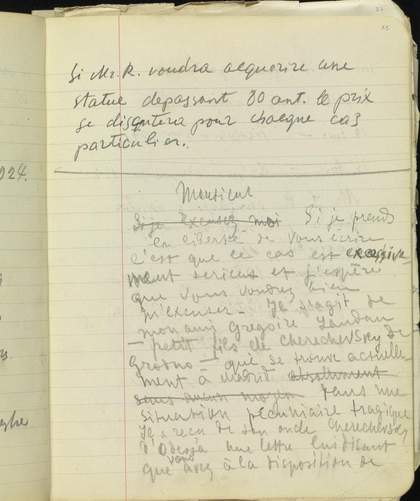 Si Mr. R. voudra acquerire une
statue depassant 80 ant. le prix
se disqutera pour chaeque cas
particulier.
024.
Monsieur
Si je excusez moi Si je prends
la liberté de vous écrire
c'est que ce cas est excessive
ment serieux et j'espère
que vous voudrez bien
m'excuser. Il s'agit de
mon ami Gregoire Landau
— petit fils de Cherechevsky de
Grodno — qui se trouve actuelle
ment à Madrid absolument
sans aucun moyen dans une
situation pecuniaire tragique
Il a reçu de son oncle Cherechevsky
d'Odessa une lettre lui disant
que vous avez à la disposition de